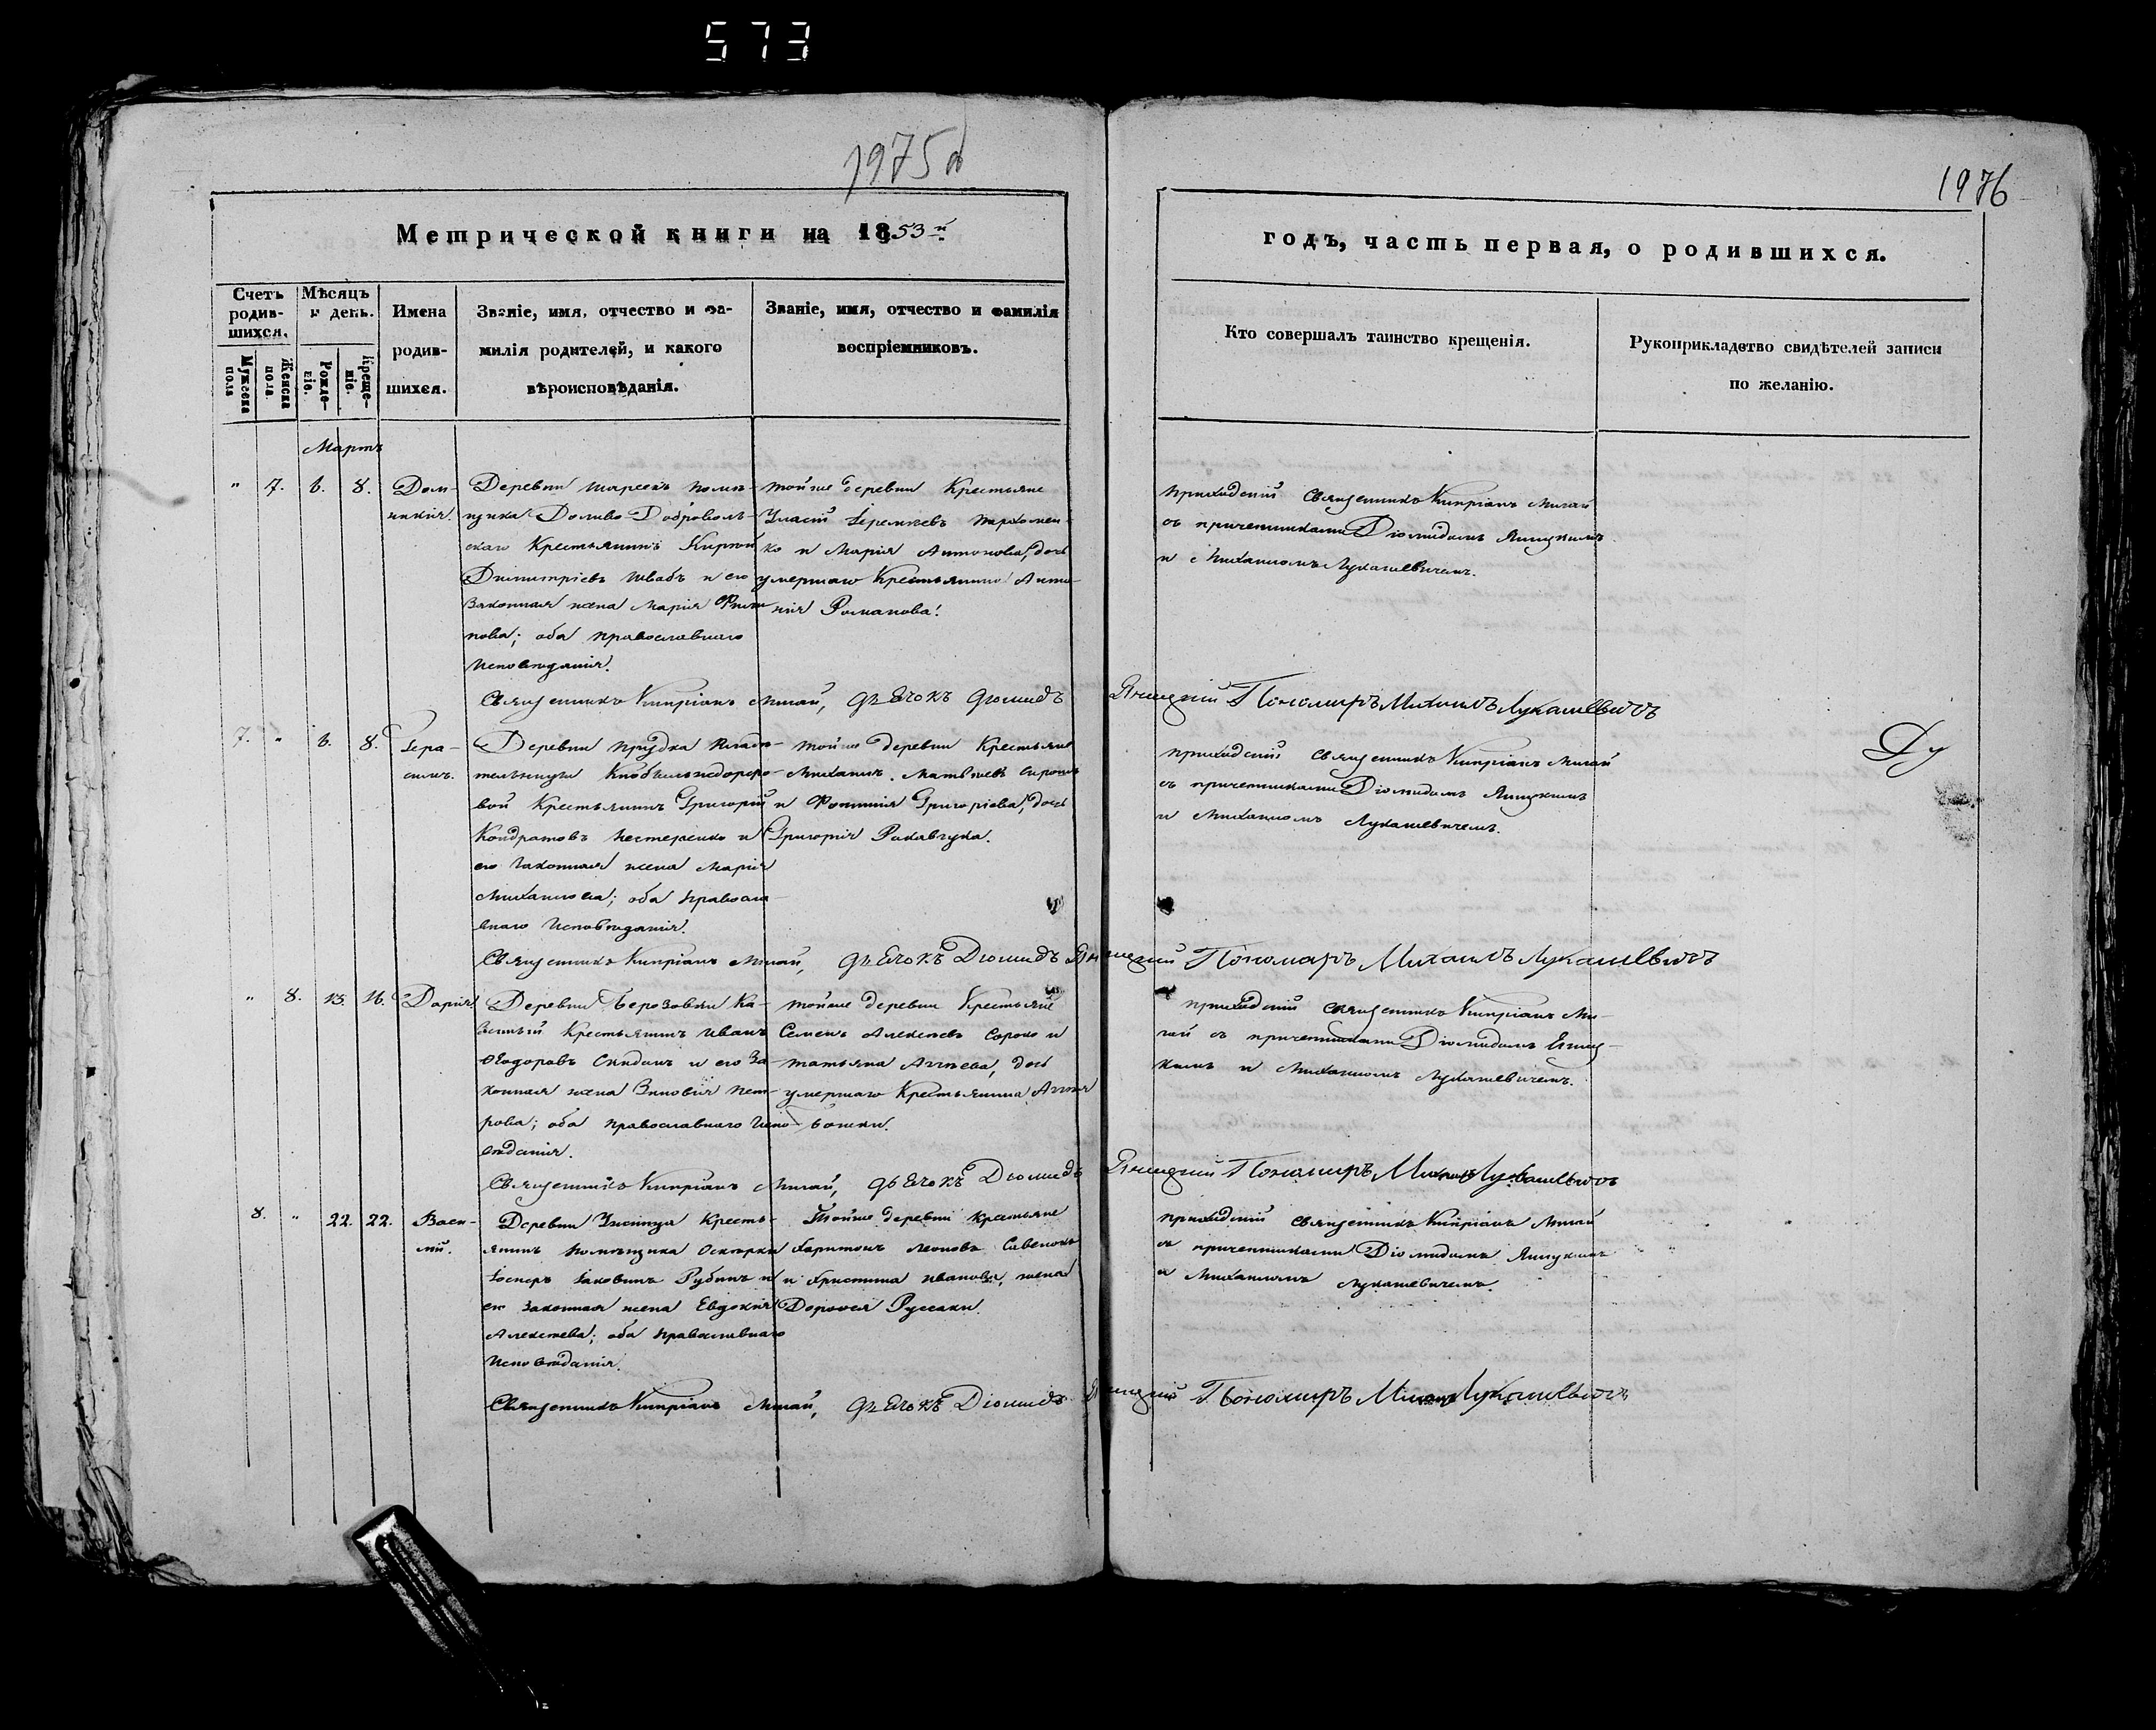 573
1975
1976
Метрической книги на 1853 й
годъ, часть первая, о родившихся.
Счетъ родив-шихся.
Мужеска пола
Женска пола.
Мѣсяцъ и день.
Рожде-ніе.
Креще-ніе.
Имена
родив-
шихся.
Званіе, имя, отчество и фа-
милія родителей, и какого
вѣроисповѣданія.
Званіе, имя, отчество и фамилія
воспріемниковъ.
Кто совершалъ таинство крещенія.
Рукоприкладство свидѣтелей записи
по желанію.
Мартъ
" 7. 6. 8. Дом-
никія.
Деревни помѣ-
щика Доливо-Доброволь-
скаго Крестьянинъ
Димитріевъ Швабъ и его
Законная жена Марія
нова; оба православнаго
Исповѣданія.
тойже деревни Крестьяне
Еремѣевъ Пархомен-
ко и Марія Антонова, дочь
умершаго Крестьянина Анто-
нія Романова.
приходскій Священникъ Кипріанъ Мигай
съ причетниками Діомидомъ Яницкимъ
и Михаиломъ Лукашевичемъ.
Священникъ Кипріанъ Мигай, дьячокъ Діомидъ Яницкій Пономарь Михаилъ Лукашевичъ
7. " 6. 8. Гера-
симъ.
Деревни Прудка владѣ-
тельницы
вой Крестьянинъ Григорій
Кондратовъ Нестеренко и
его Законная жена Марія
Михаилова; оба Правосла-
внаго Исповѣданія.
тойже деревни Крестьяне
Михаилъ Матвѣевъ
и Фотинія Григоріева, дочь
Григорія
приходскій Священникъ Кипріанъ Мигай
съ причетниками Діомидомъ Яницкимъ
и Михаиломъ Лукашевичемъ.
Священникъ Кипріанъ Мигай, дьячокъ Діомидъ Яницкій Пономарь Михаилъ Лукашевичъ
" 8. 13. 16. Дарія
Деревни Березовки Ка-
Крестьянинъ Иванъ
Ѳеодоровъ и его За-
конная жена Зиновія Пет-
рова; оба Православнаго Испо-
вѣданія.
тойже деревни Крестьяне
Семенъ Алексѣевъ Сороко и
Татьяна дочь
умершаго Крестьянина
приходскій Священникъ Кипріанъ Ми-
гай съ причетниками Діомидомъ Яниц-
кимъ и Михаиломъ Лукашевичемъ.
Священникъ Кипріанъ Мигай, дьячокъ Діомидъ Яницкій Пономарь Михаилъ Лукашевичъ
8. " 22. 22. Васи-
лій.
Деревни Кресть-
янинъ помѣщика Оскерки
Іаковинъ Рубанъ и
его Законная жена Евдокія
Алексѣева; оба Православнаго
Исповѣданія.
Тойже деревни Крестьяне
Харитонъ Леоновъ
и Христина Иванова, жена
Дороѳея
приходскій Священникъ Кипріанъ Мигай
съ причетниками Діомидомъ Яницкимъ
и Михаиломъ Лукашевичемъ.
Священникъ Кипріанъ Мигай, дьячокъ Діомидъ Яницкій Пономарь Михаилъ Лукашевичъ